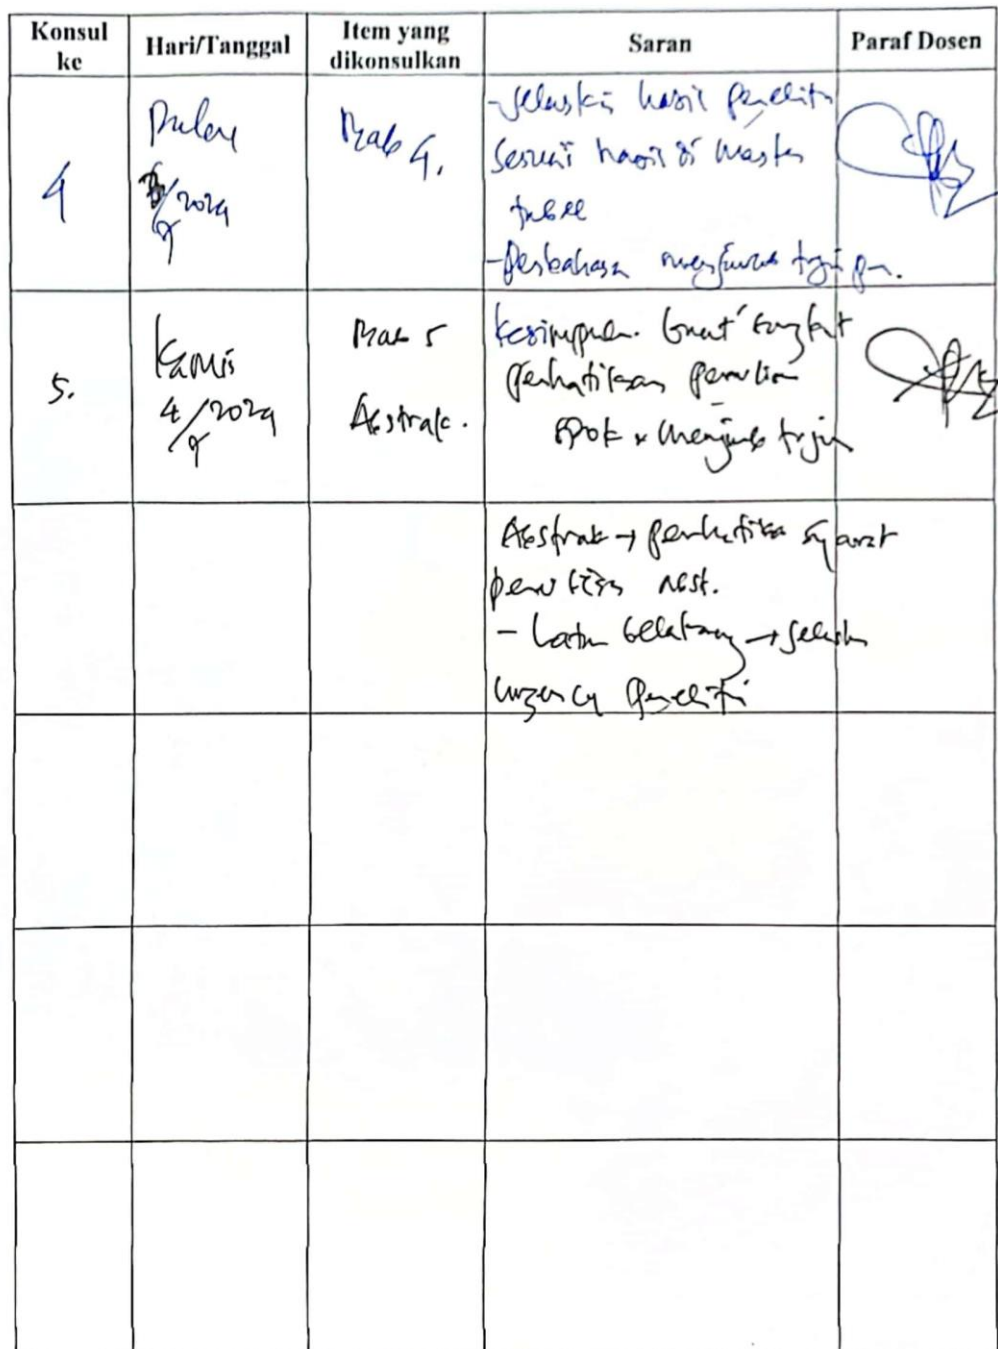 Konsul ke
Hari/Tanggal
Item yang dikonsulkan
Saran
Paraf Dosen
4
/2024
Bab 4.
- Jelaskan hasil peneliti
sesuai hasil di master
tabel
- Pembahasan menjawab tujuan
5.
Kamis
4/2024
Bab 5
Abstrak.
Kesimpulan. buat singkat
perhatikan penulisan
SPOK menjawab tujuan
Abstrak → perhatikan syarat
penulisan
- Latar belakang → jelaskan
urgency peneliti